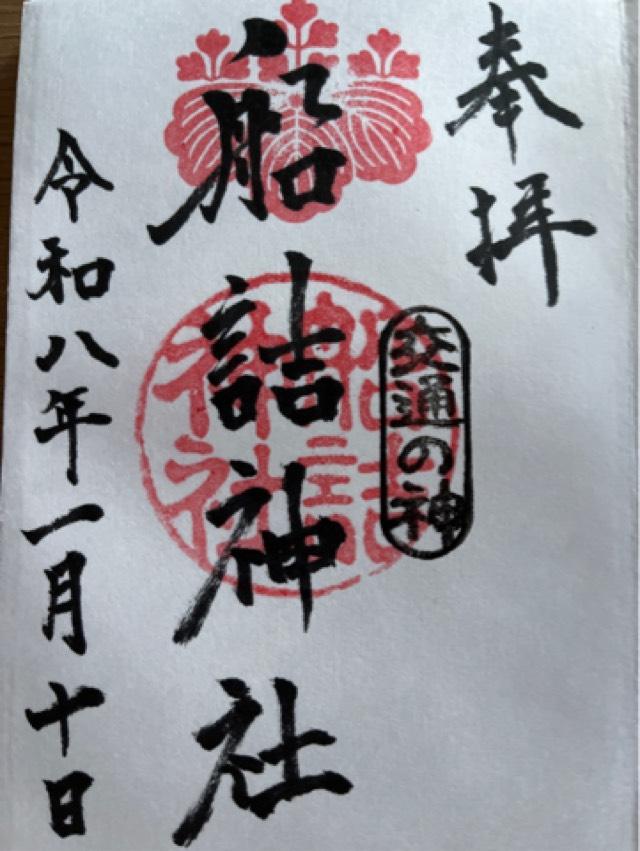 奉拝
交通の神
船詰神社
船詰神社
令和八年一月十日